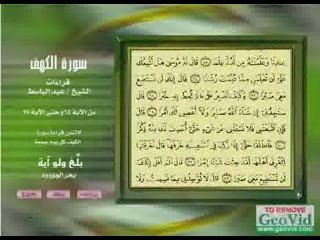 سورة الكهف
قراءات
الشيخ / عبد الباسط
من الآية وحتى الآية
لاتنس قراءة سورة
الكهف كل يوم جمعة
بلغ ولو آية
بحر الجووود
عندنا وعلمناه من لدنا علما قال له موسى هل أتبعك
على أن تعلمن مما علمت رشدا قال إنك لن تستطيع
معي صبرا وكيف تصبر على ما لم تحط به خبرا قال
ستجدني إن شاء الله صابرا ولا أعصي لك أمرا قال
فإن اتبعتني فلا تسألني عن شيء حتى أحدث لك منه ذكرا
فانطلقا حتى إذا ركبا في السفينة خرقها قال أخرقتها
لتغرق أهلها لقد جئت شيئا إمرا قال ألم أقل إنك
لن تستطيع معي صبرا قال لا تؤاخذني بما
TO REMOVE
GeoVid
www.geovid.com